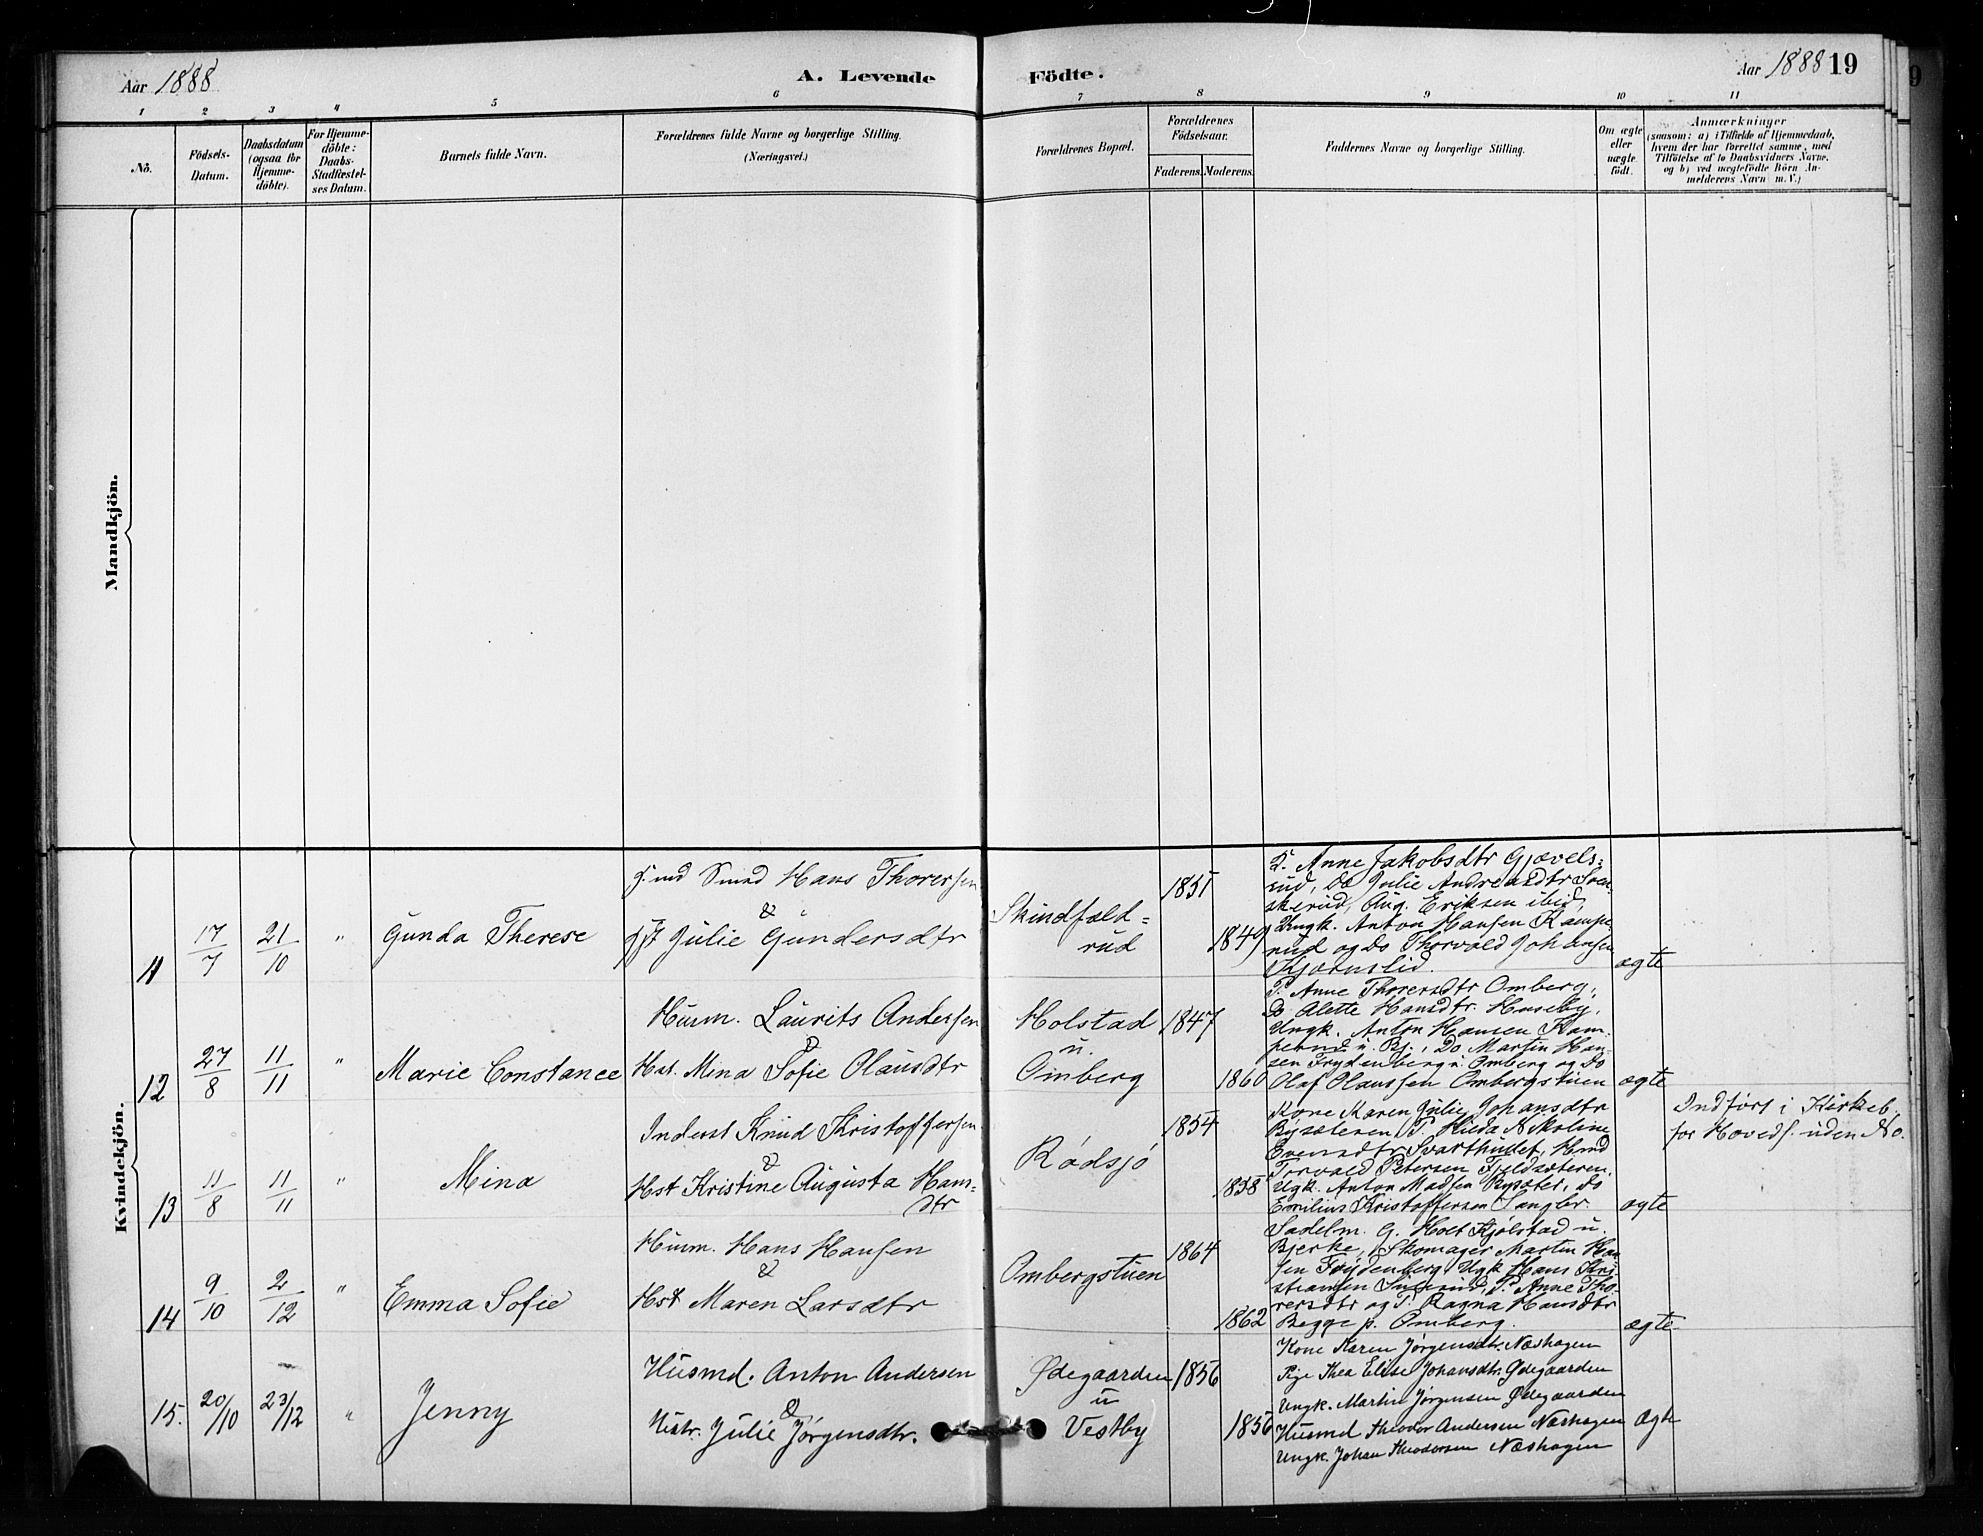 Aar 1888
A. Levende
Födte.
Aar 1888 19
1 2 3 4 5 6 7 8 9 10 11
No.
Födsels-
Datum.
Daabsdatum
(ogsaa for
Hjemme-
döbte).
For Hjemme-
döbte:
Daabs-
Stadfæstel-
ses Datum.
Barnets fulde Navn.
Forældrenes fulde Navne og borgerlige Stilling.
(Næringsvei.)
Forældrenes Bopæl.
Forældrenes
Födselsaar.
Faderens. Moderens.
Faddernes Navne og borgerlige Stilling.
Om ægte
eller
uægte
födt.
Anmærkninger
(saasom: a) i Tilfælde af Hjemmedaab,
hvem der har forrettet samme, med
Tilföielse af to Daabsvidners Navne,
og b) ved uægtefödte Börn An-
melderens Navn m. V.)
Mandkjön.
Kvindekjön.
11
17/7
21/10
"
Gunda Therese
Smed Hans Thoresen
&
Julie Gundersdtr
Skindfæld=
rud
1851
1849
Anne Jakobsdtr Gjævels=
rud, Do Julie Andreasdtr Sven-
skerud, Aug. Eriksen ibid,
Ungk. Anton Hansen Kampe-
rud og Do Thorvald Johansen
Kjærnslid.
ægte
12
27/8
11/11
"
Marie Constance
Husm. Laurits Andersen
&
Hst. Mina Sofie Olausdtr
Holstad
u.
Omberg
1847
1860
P. Anne Thorersdtr Omberg,
Do Alette Hansdtr. Huseby,
Ungk. Anton Hansen Kam-
perud u. Bj., Do Martin Han-
sen Frydenberg u. Omberg og Do
Olaf Olaussen Ombergstuen
ægte
13
11/8
11/11
"
Mina
Inderst Knud Kristoffersen
&
Hst Kristine Augusta Hans=
dtr
Rödsjö
1854
1858
Kone Karen Julie Johansdtr
Bysæteren, P. Hilda Nikoline
Evensdtr Svarthuttet, Hmd
Torvald Petersen Fjeldsæteren,
Ugk. Anton Madsen Bysæter, Do
Emilius Kristoffersen
ægte
Indfört i Kirkeb.
for Hoveds. uden No.
14
9/10
2/12
"
Emma Sofie
Husm. Hans Hansen
&
Hst Maren Larsdtr
Ombergstuen
1864
1862
Sadelm. G. Holt Kjölstad u.
Bjerke, Skomager Martin Han-
sen Frydenberg, Ugk Hans Kri
stiansen P. Anne Tho-
rersdtr og P. Ragna Hansdtr
Begge p. Omberg.
ægte
15.
20/10
23/12
"
Jenny
Husmd. Anton Andersen
&
Hstr. Julie Jørgensdtr.
Ødegaarden
u
Vestby
1856
1856
Kone Karen Jørgensdtr. Næshagen
Pige Thea Elise Johansdtr. Ødegaarden
Ungk. Martin Jørgensen Ødegaarden
Husmd Theodor Andersen Næshagen
Ungk. Johan Theodorsen Næshagen
Ægte